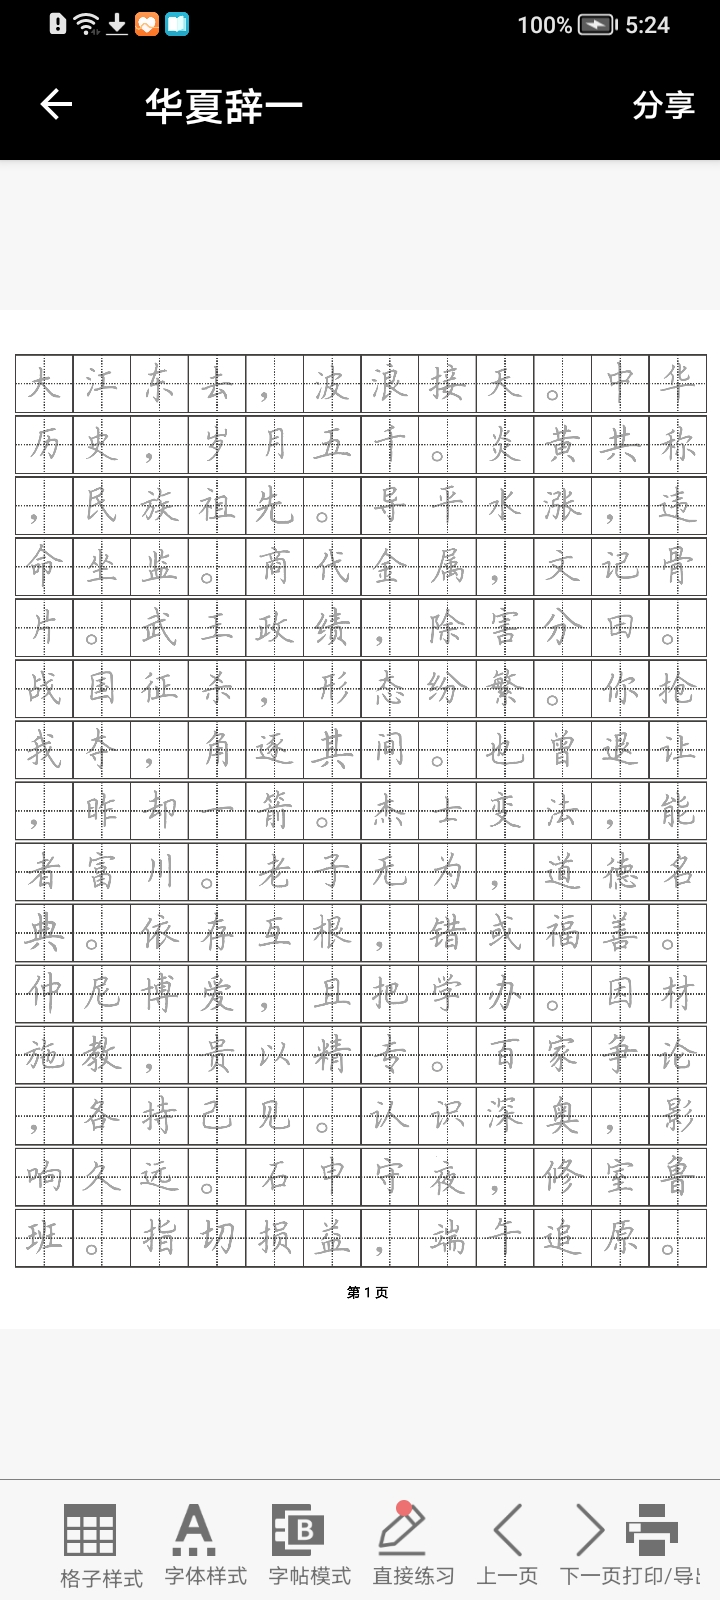 100% 5:24
华夏辞一 分享
大江东去，波浪接天。中华
历史，岁月五千。炎黄共称
，民族祖先。导平水涨，违
命坐监。商代金属，文记骨
片。武王政绩，除害分田。
战国征杀，形态纷繁。你抢
我夺，角逐其间。也曾退让
，昨却一箭。杰士变法，能
者富川。老子无为，道德名
典。依存互根，错或福善。
仲尼博爱，且把学办。因材
施教，贵以精专。百家争论
，各持己见。认识深奥，影
响久远。石申守夜，修室鲁
班。指切损益，端午追原。
第 1 页
格子样式 字体样式 字帖模式 直接练习 上一页 下一页 打印/导出